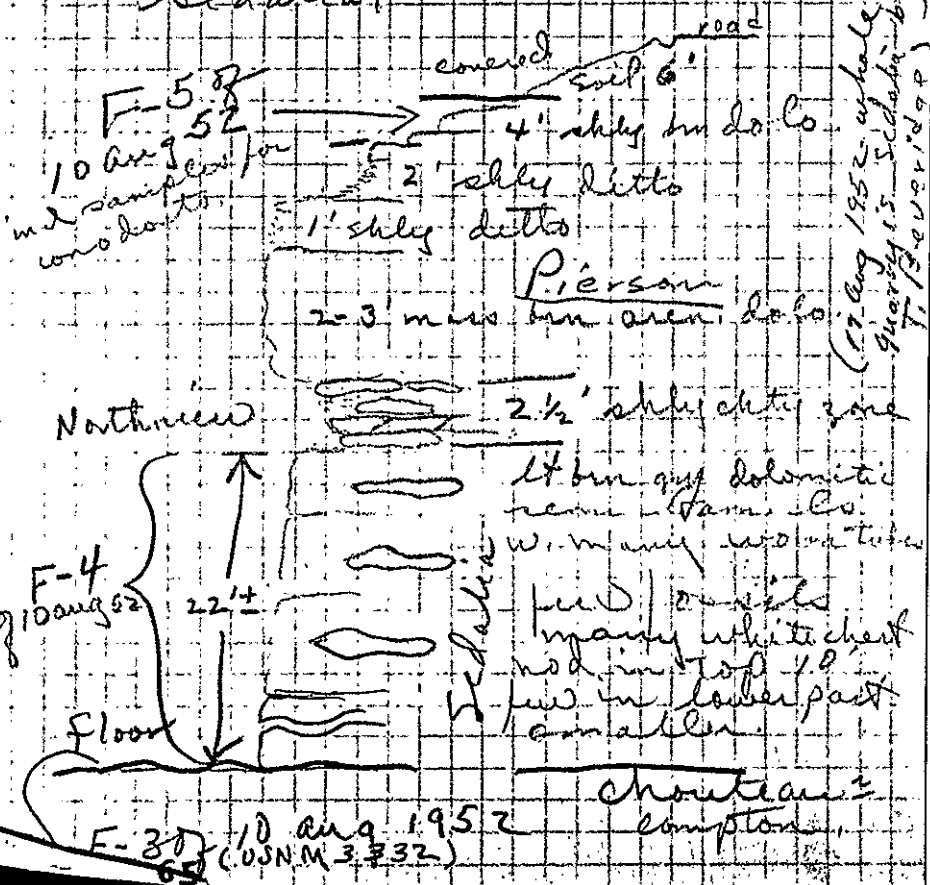 Sedalia,
road
covered
soil 6'
F-5 of
52
10 Aug
incl samples for
conodonts
4' shly brn dolo
2' shly ditto
1' shly ditto
Pierson
2-3' mass brn aren. dolo.
(17 Aug 1952 whole
quarry is Sedalia
T. Beveridge)
Northview
2 1/2' shly chty zone
lt brn gry dolomitic
w. many worm tubes
F-4
of 10 Aug 52
22'±
Sedalia
few fossils
many white chert
nod in top 10'
few in lower part
smaller.
Floor
Chouteau =
Compton.
F-3 of 10 Aug 1952
(USNM 3332)